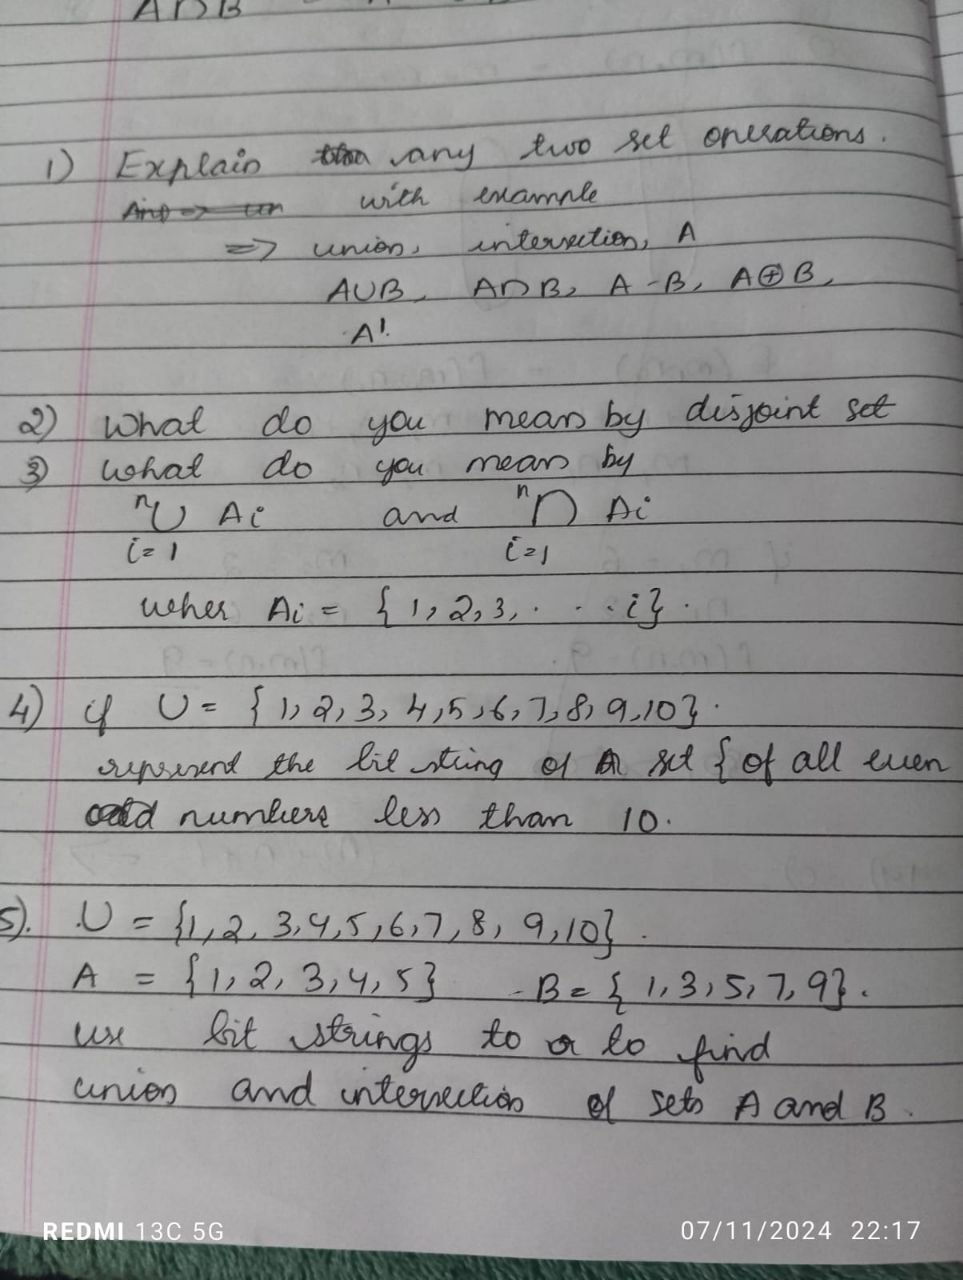 A∩B
1) Explain any two set operations.
with example
=> union, intersection, A
A∪B, A∩B, A-B, A⊕B,
A'.
2) What do you mean by disjoint set
3) what do you mean by
n∪ Ai and n∩ Ai
i=1 i=1
wher Ai = {1,2,3,...i}.
4) if U = {1,2,3,4,5,6,7,8,9,10}.
represend the bit string of set { of all even
numbers less than 10.
5). U = {1,2,3,4,5,6,7,8,9,10}.
A = {1,2,3,4,5} B = {1,3,5,7,9}.
use bit strings to to find
union and intersection of sets A and B.
REDMI 13C 5G 07/11/2024 22:17